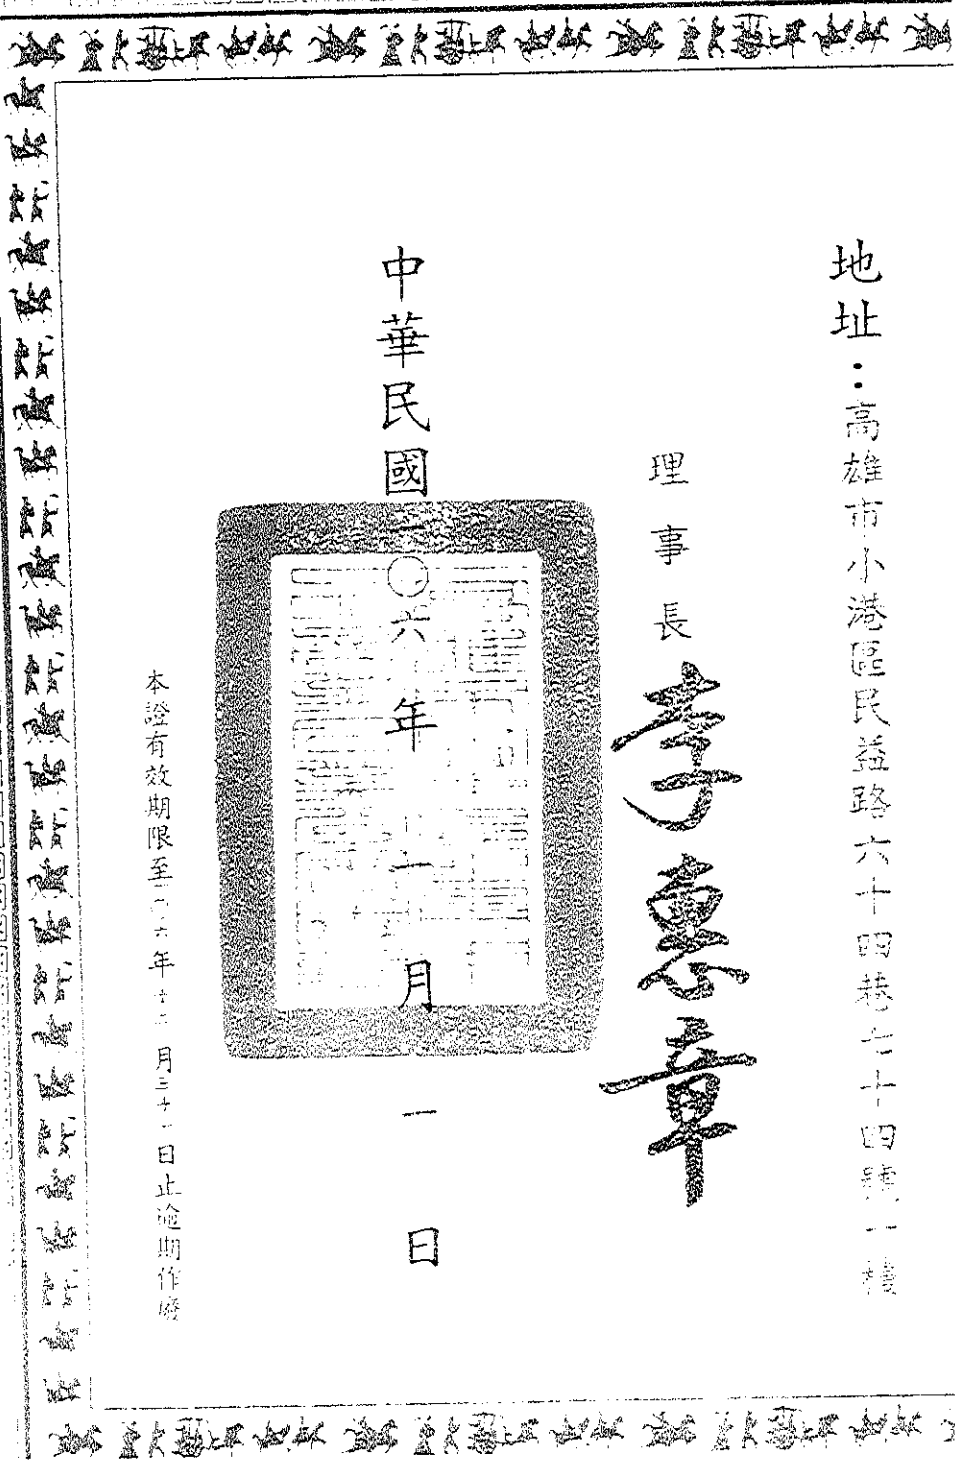 地址：高雄市小港區民益路六十四巷七十四號一樓
理事長 李惠章
中華民國一〇六年十一月一日
本證有效期限至一〇六年十二月三十一日止逾期作廢